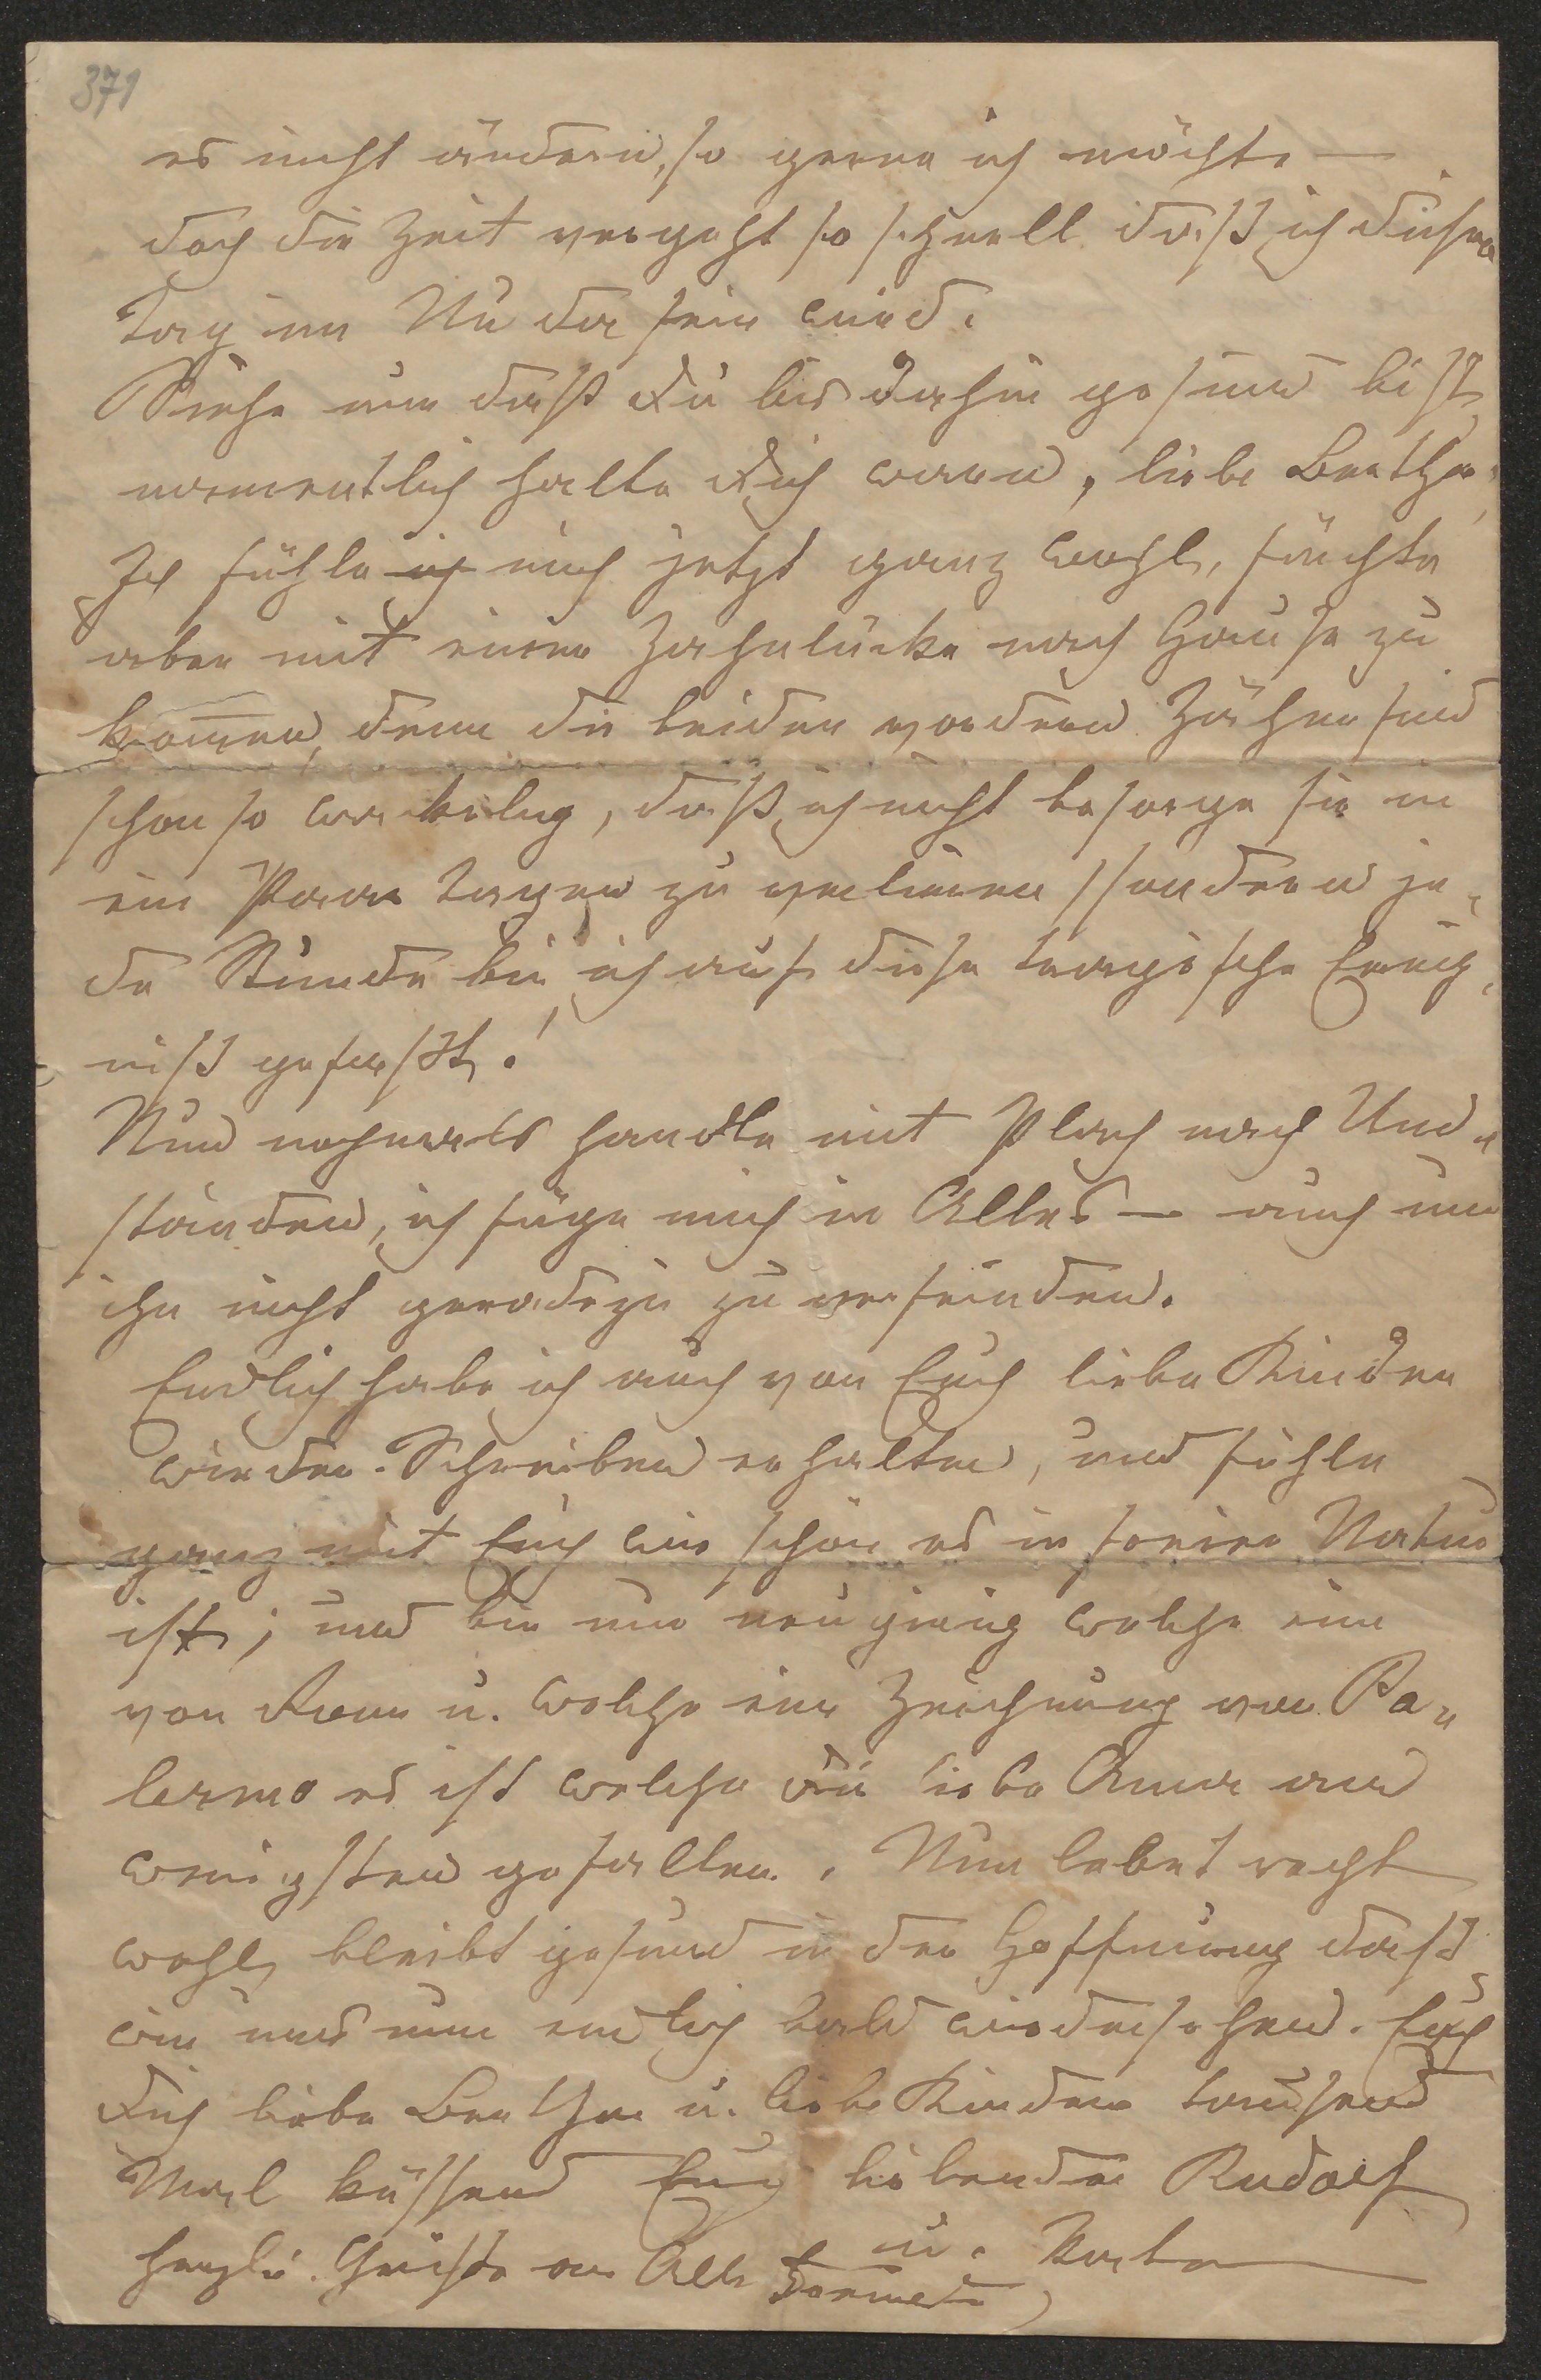 371
es nicht ändern, so gerne ich möchte —
doch die Zeit vergeht so schnell daß ich dieser
Tag im Nu da sein wird.
Siehe nur daß Du bis dahin gesund bist,
namentlich halte Dich warm, liebe Bertha,
Ich fühle ich mich jetzt ganz wohl, fürchte
aber mit einer Zahnlücke nach Hause zu
kom̄en, denn die beiden vordern Zähne sind
schon so wackelig, daß ich nicht besorge sie in
ein Paar Tagen zu verlieren sondern je-
de Stunde bin ich auf diese tragische Ereig-
niß gefaßt!
Nun nochmals handle mit Plach nach Um-
ständen, ich füge mich in Alles — auch um
ihn nicht geradezu zu verfeinden.
Endlich habe ich auch von Euch liebe Kinder
wieder Schreiben erhalten, und fühle
ganz mit Euch wie schön es in freier Natur
ist; und bin nur neugierig welche eine
von Rom u. welche eine Zeichnung von Pa-
lermo es ist welche Dir liebe Anna am
wenigsten gefallen. Nun lebet recht
wohl, bleibt gesund in der Hoffnung daß
wir uns nun endlich bald wiedersehen. Euch
Dich liebe Bertha u. liebe Kinder tausend
Mal küssend Euch liebender Rudolf
herzli. Grüße an Alle Fremde u.